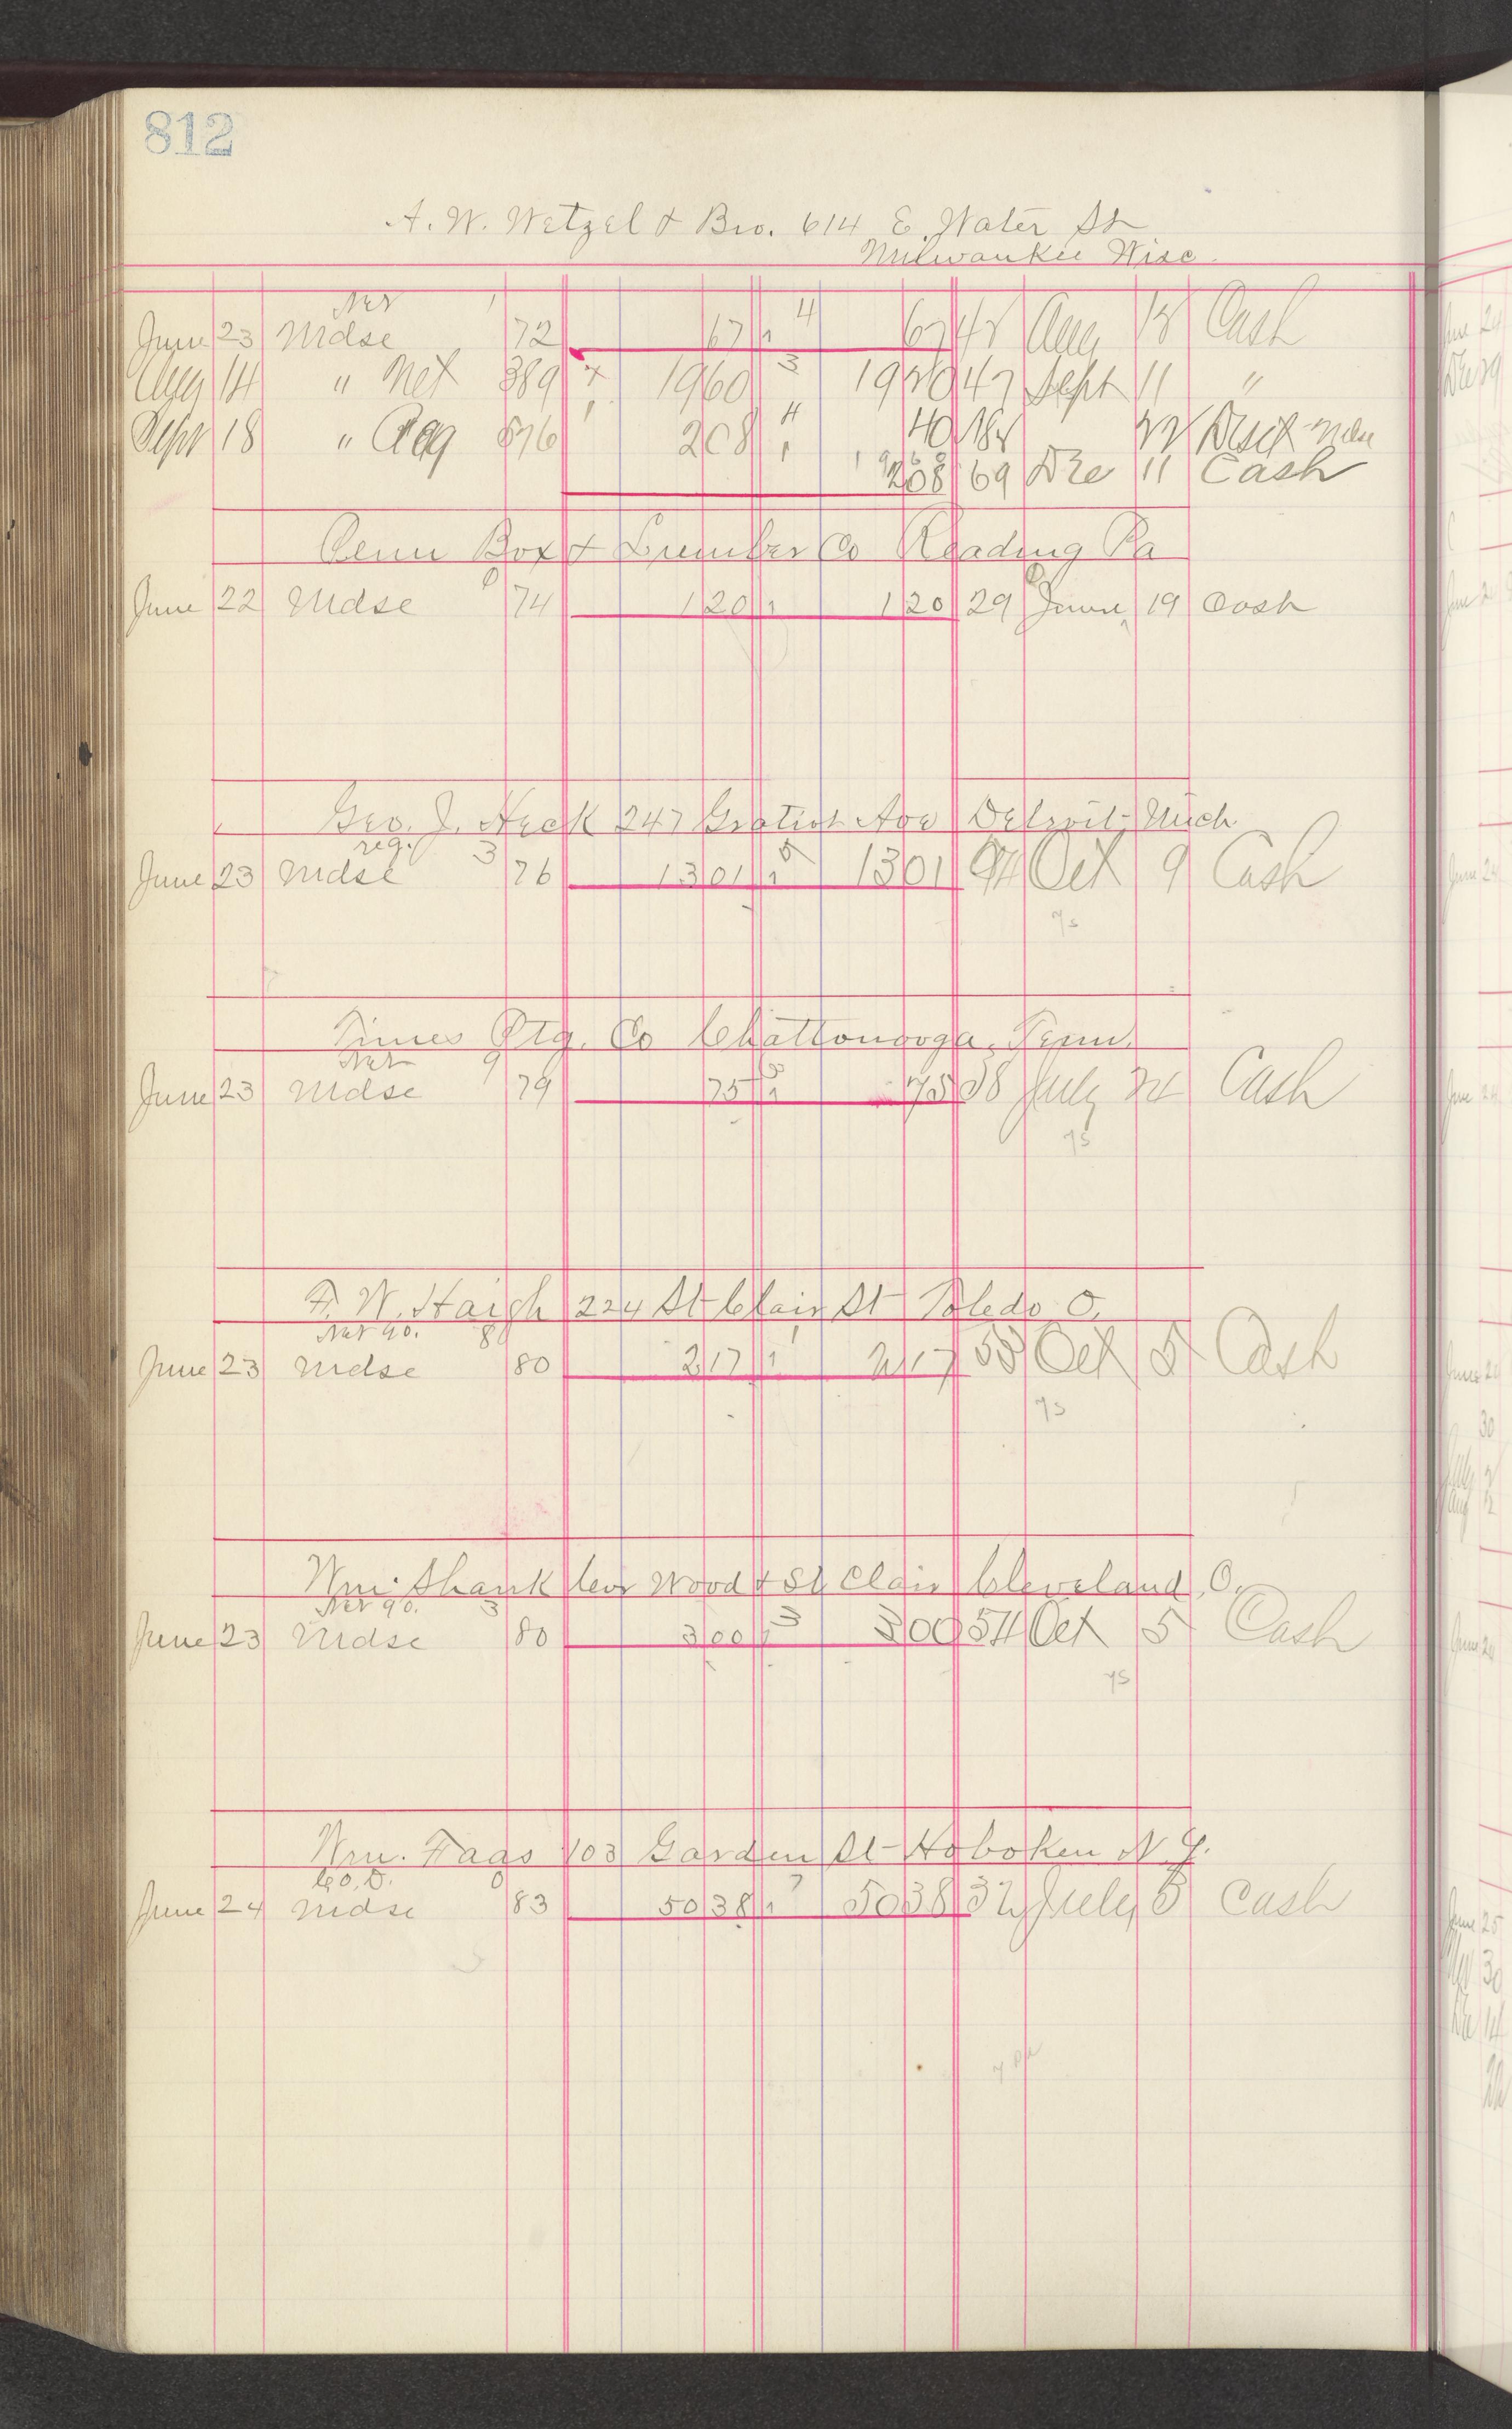 812
A. W. Wetzel & Bro. 614 E. Water St
Milwaukee Wisc.
Net
June 23 Mdse 72 67 1 4 67 48 Aug 18 Cash
Aug 14 " Net 389 1960 3 47 Sept 11 "
Sept 18 " Reg 576 208 4 40 Mdse
208 69 Dec 11 Cash
Penn Box & Lumber Co Reading Pa
June 22 Mdse 74 120 1 120 29 June 19 Cash
Geo. J. Heck 247 Gratiot Ave Detroit Mich
reg. 3
June 23 Mdse 76 1301 1 5 1301 94 Oct 9 Cash
7s
Times Ptg. Co Chattonooga, Tenn.
Net 9
June 23 Mdse 79 75 1 75 38 July 24 Cash
7s
F. W. Haigh 224 St Clair St Toledo O.
Net 90. 8
June 23 Mdse 80 217 1 217 58 Oct 5 Cash
7s
Wm. Shank Cor Wood & St Clair Cleveland, O.
Net 90. 3
June 23 Mdse 80 300 1 3 300 54 Oct 5 Cash
7s
Wm. Faas 103 Garden St Hoboken N. J.
C.O.D. 0
June 24 Mdse 83 5038 1 7 5038 32 July 5 Cash